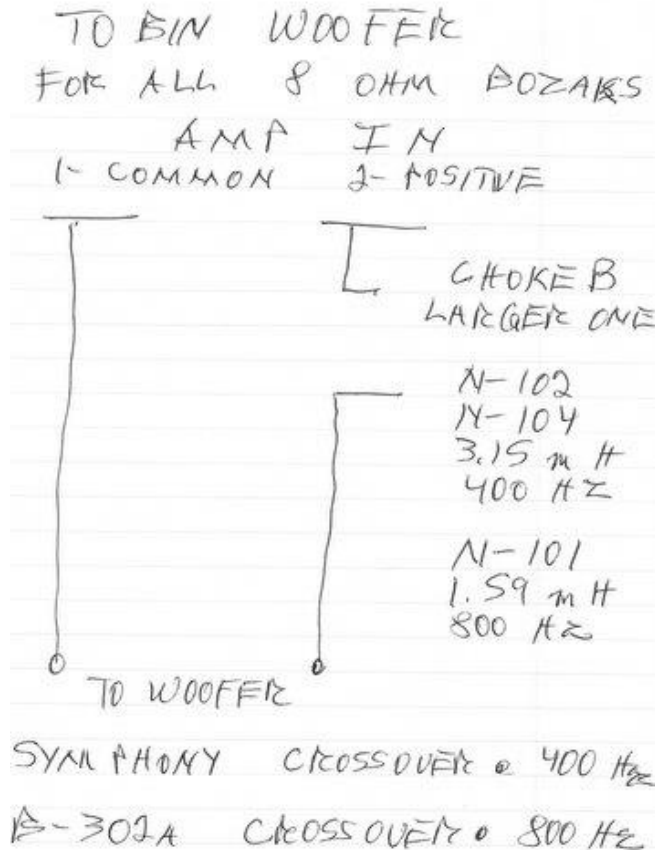 TO BIN WOOFER
FOR ALL 8 OHM BOZAKS
AMP IN
1- COMMON 2- POSITIVE
CHOKE B
LARGER ONE
N-102
N-104
3.15 mH
400 HZ
N-101
1.59 mH
800 HZ
TO WOOFER
SYMPHONY CROSSOVER @ 400 HZ
B-302A CROSSOVER @ 800 HZ